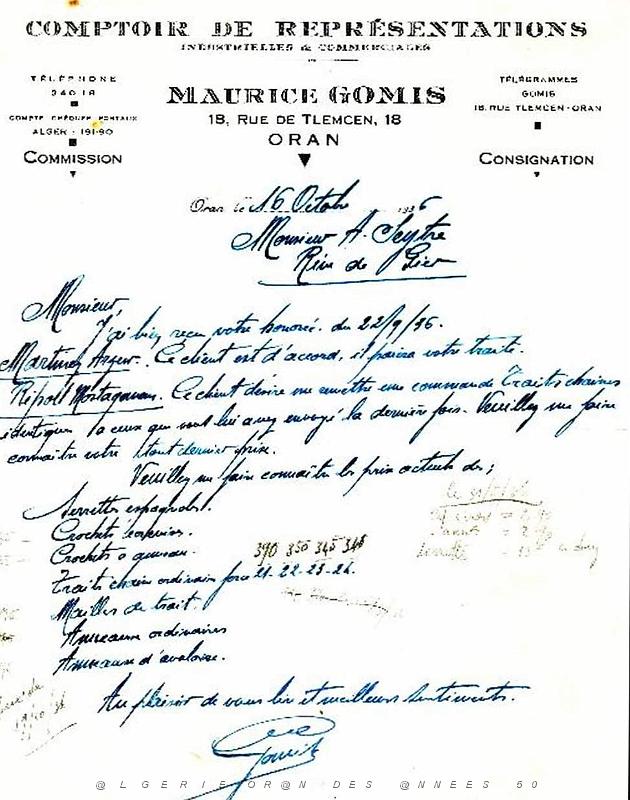 COMPTOIR DE REPRÉSENTATIONS
INDUSTRIELLES & COMMERCIALES
TÉLÉPHONE
240.18
COMPTE CHÈQUES POSTAUX
ALGER - 191-90
COMMISSION
MAURICE GOMIS
18, RUE DE TLEMCEN, 18
ORAN
TÉLÉGRAMMES
GOMIS
18. RUE TLEMCEN - ORAN
CONSIGNATION
Oran le 16 Octobre 1936
Monsieur A. Seytre
Rive de Gier
Monsieur,
J'ai bien reçu votre honorée du 22/9/36.
Martinez Arzew. Ce client est d'accord, il paiera votre traite.
Ripoll Mostaganem. Ce client désire me remettre une commande Traits chaines
identiques à ceux que vous lui avez envoyé la dernière fois. Veuillez me faire
connaitre votre tout dernier prix.
Veuillez me faire connaitre les prix actuels des;
Serrettes espagnoles.
Crochets
Crochets à
390 350 345 345
Traits chaine ordinaires force 21-22-23-24.
Mailles de trait.
Anneaux ordinaires
Anneaux d'avaloire.
Au plaisir de vous lire et meilleurs sentiments.
Gomis
@LGERIE OR@N DES @NNEES 50